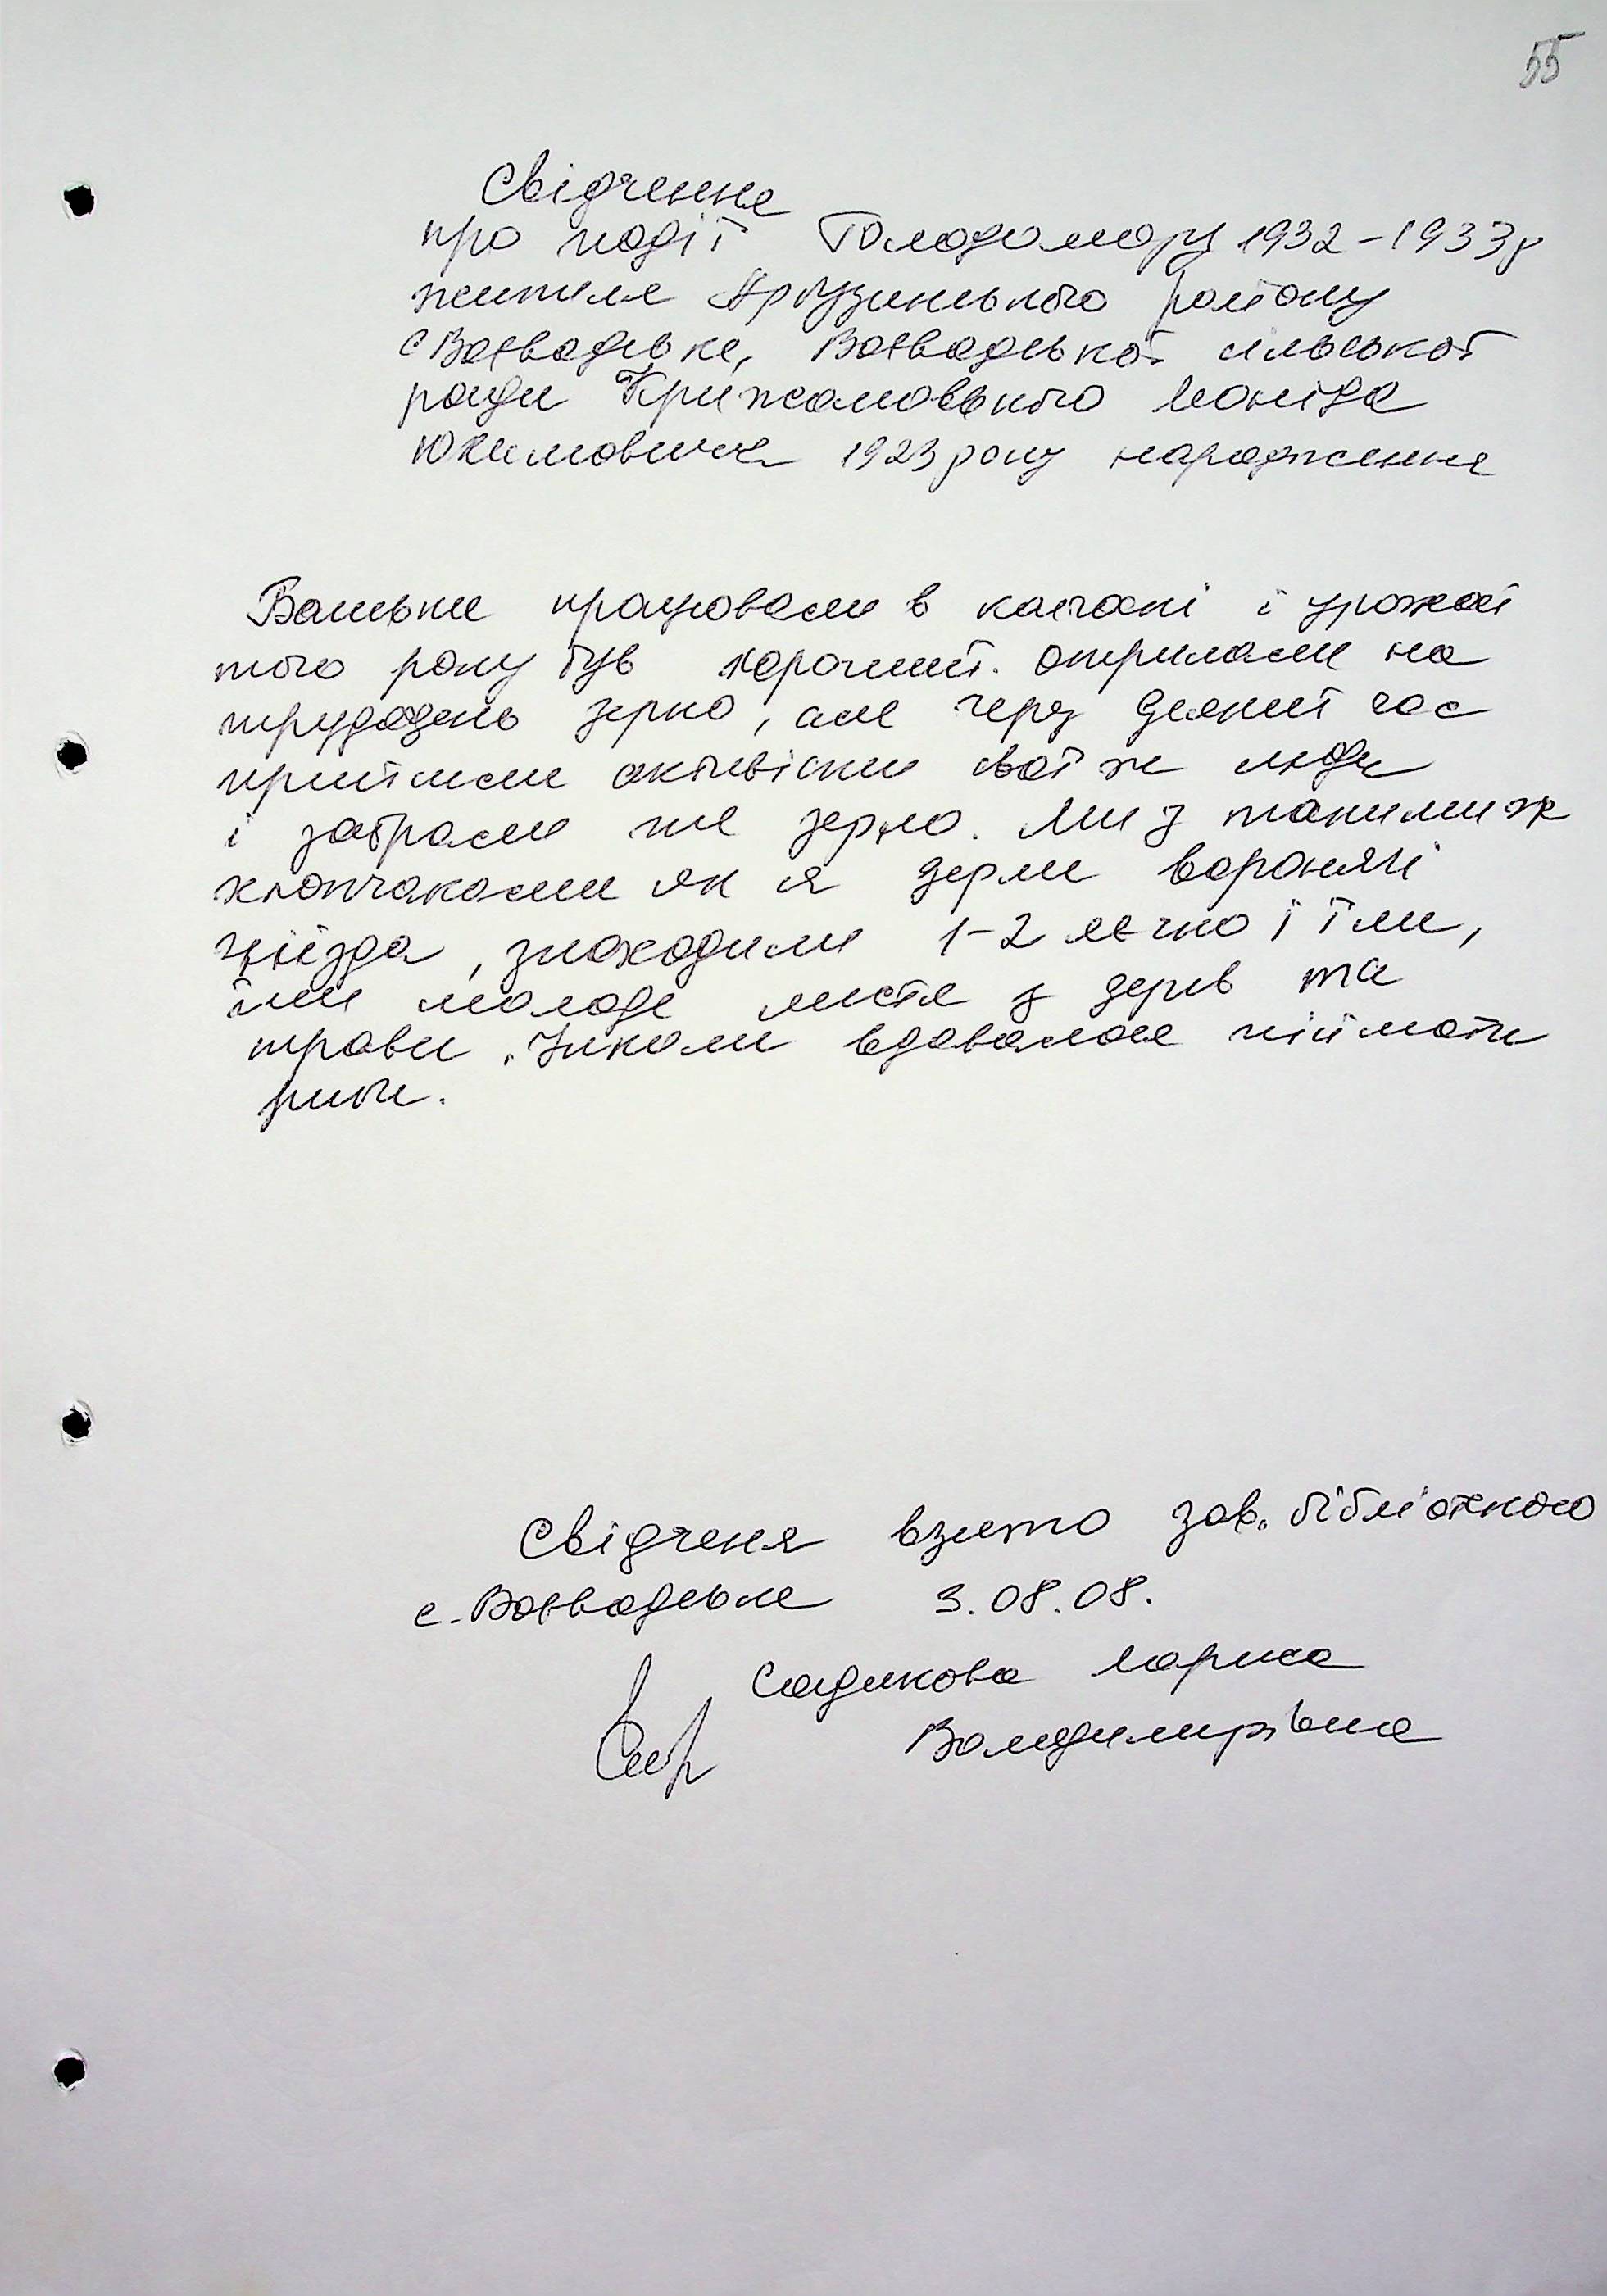 55
Свідчення
про події Голодомору 1932-1933р
жителя Арбузинського району
с Воєводське, Воєводської сільської
ради Крижановського Леоніда
Юхимовича 1923 року народження
Батьки працювали в колгоспі і урожай
того року був хороший. отримали на
трудодень зерно, але через деякий час
прийшли активісти свої ж люди
і забрали це зерно. Ми з такими ж
хлопчаками як я дерли воронячі
гнізда, знаходили 1-2 яєчко і їли,
їли молоде листя з дерев та
трави. Інколи вдавалося піймати
риби.
Свідченя взято зав. бібліотекою
с. Воєводське 3.08.08.
Садикова Лариса
Володимирівна